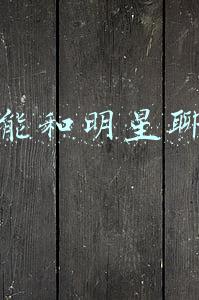 能和明星聊